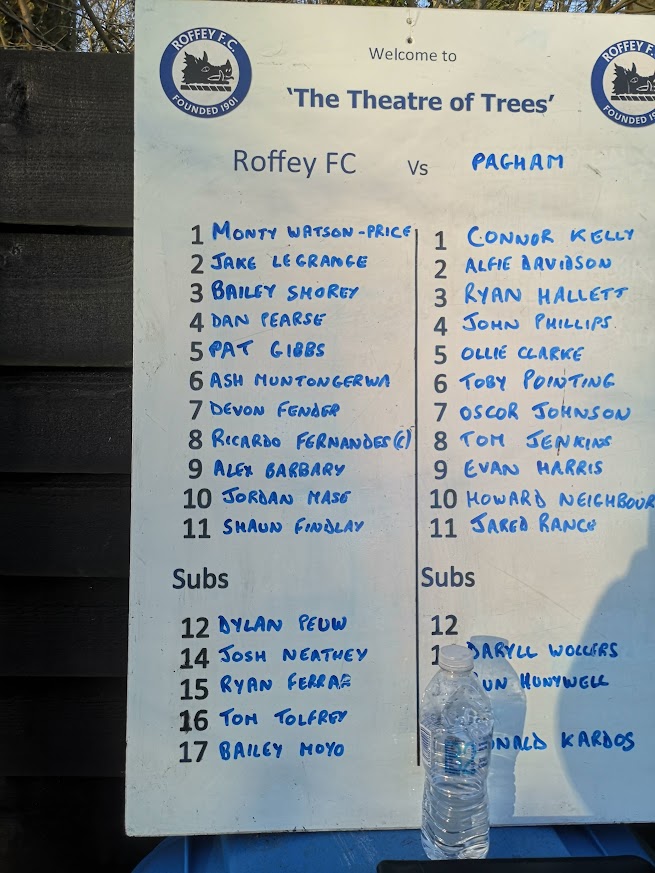 ROFFEY F.C.
FOUNDED 1901
ROFFEY F.
FOUNDED 1
Welcome to
'The Theatre of Trees'
Roffey FC Vs PAGHAM
1 MONTY WATSON-PRICE
2 JAKE LEGRANGE
3 BAILEY SMOREY
4 DAN PEARSE
5 PAT GIBBS
6 ASH MUNTONGERWA
7 DEVON FENDER
8 RICARDO FERNANDES(C)
9 ALEX BARBARY
10 JORDAN MASE
11 SHAUN FINDLAY
Subs
12 DYLAN PEUW
14 JOSH NEATHEY
15 RYAN FERRAR
16 TOM TOLFREY
17 BAILEY MOYO
1 CONNOR KELLY
2 ALFIE DAVIDSON
3 RYAN HALLETT
4 JOHN PHILLIPS
5 OLLIE CLARKE
6 TOBY POINTING
7 OSCOR JOHNSON
8 TOM JENKINS
9 EVAN HARRIS
10 HOWARD NEIGHBOUR
11 JARED RANCE
Subs
12
1 DARYLL WOLLERS
UN HUNYWELL
NALD KARDOS